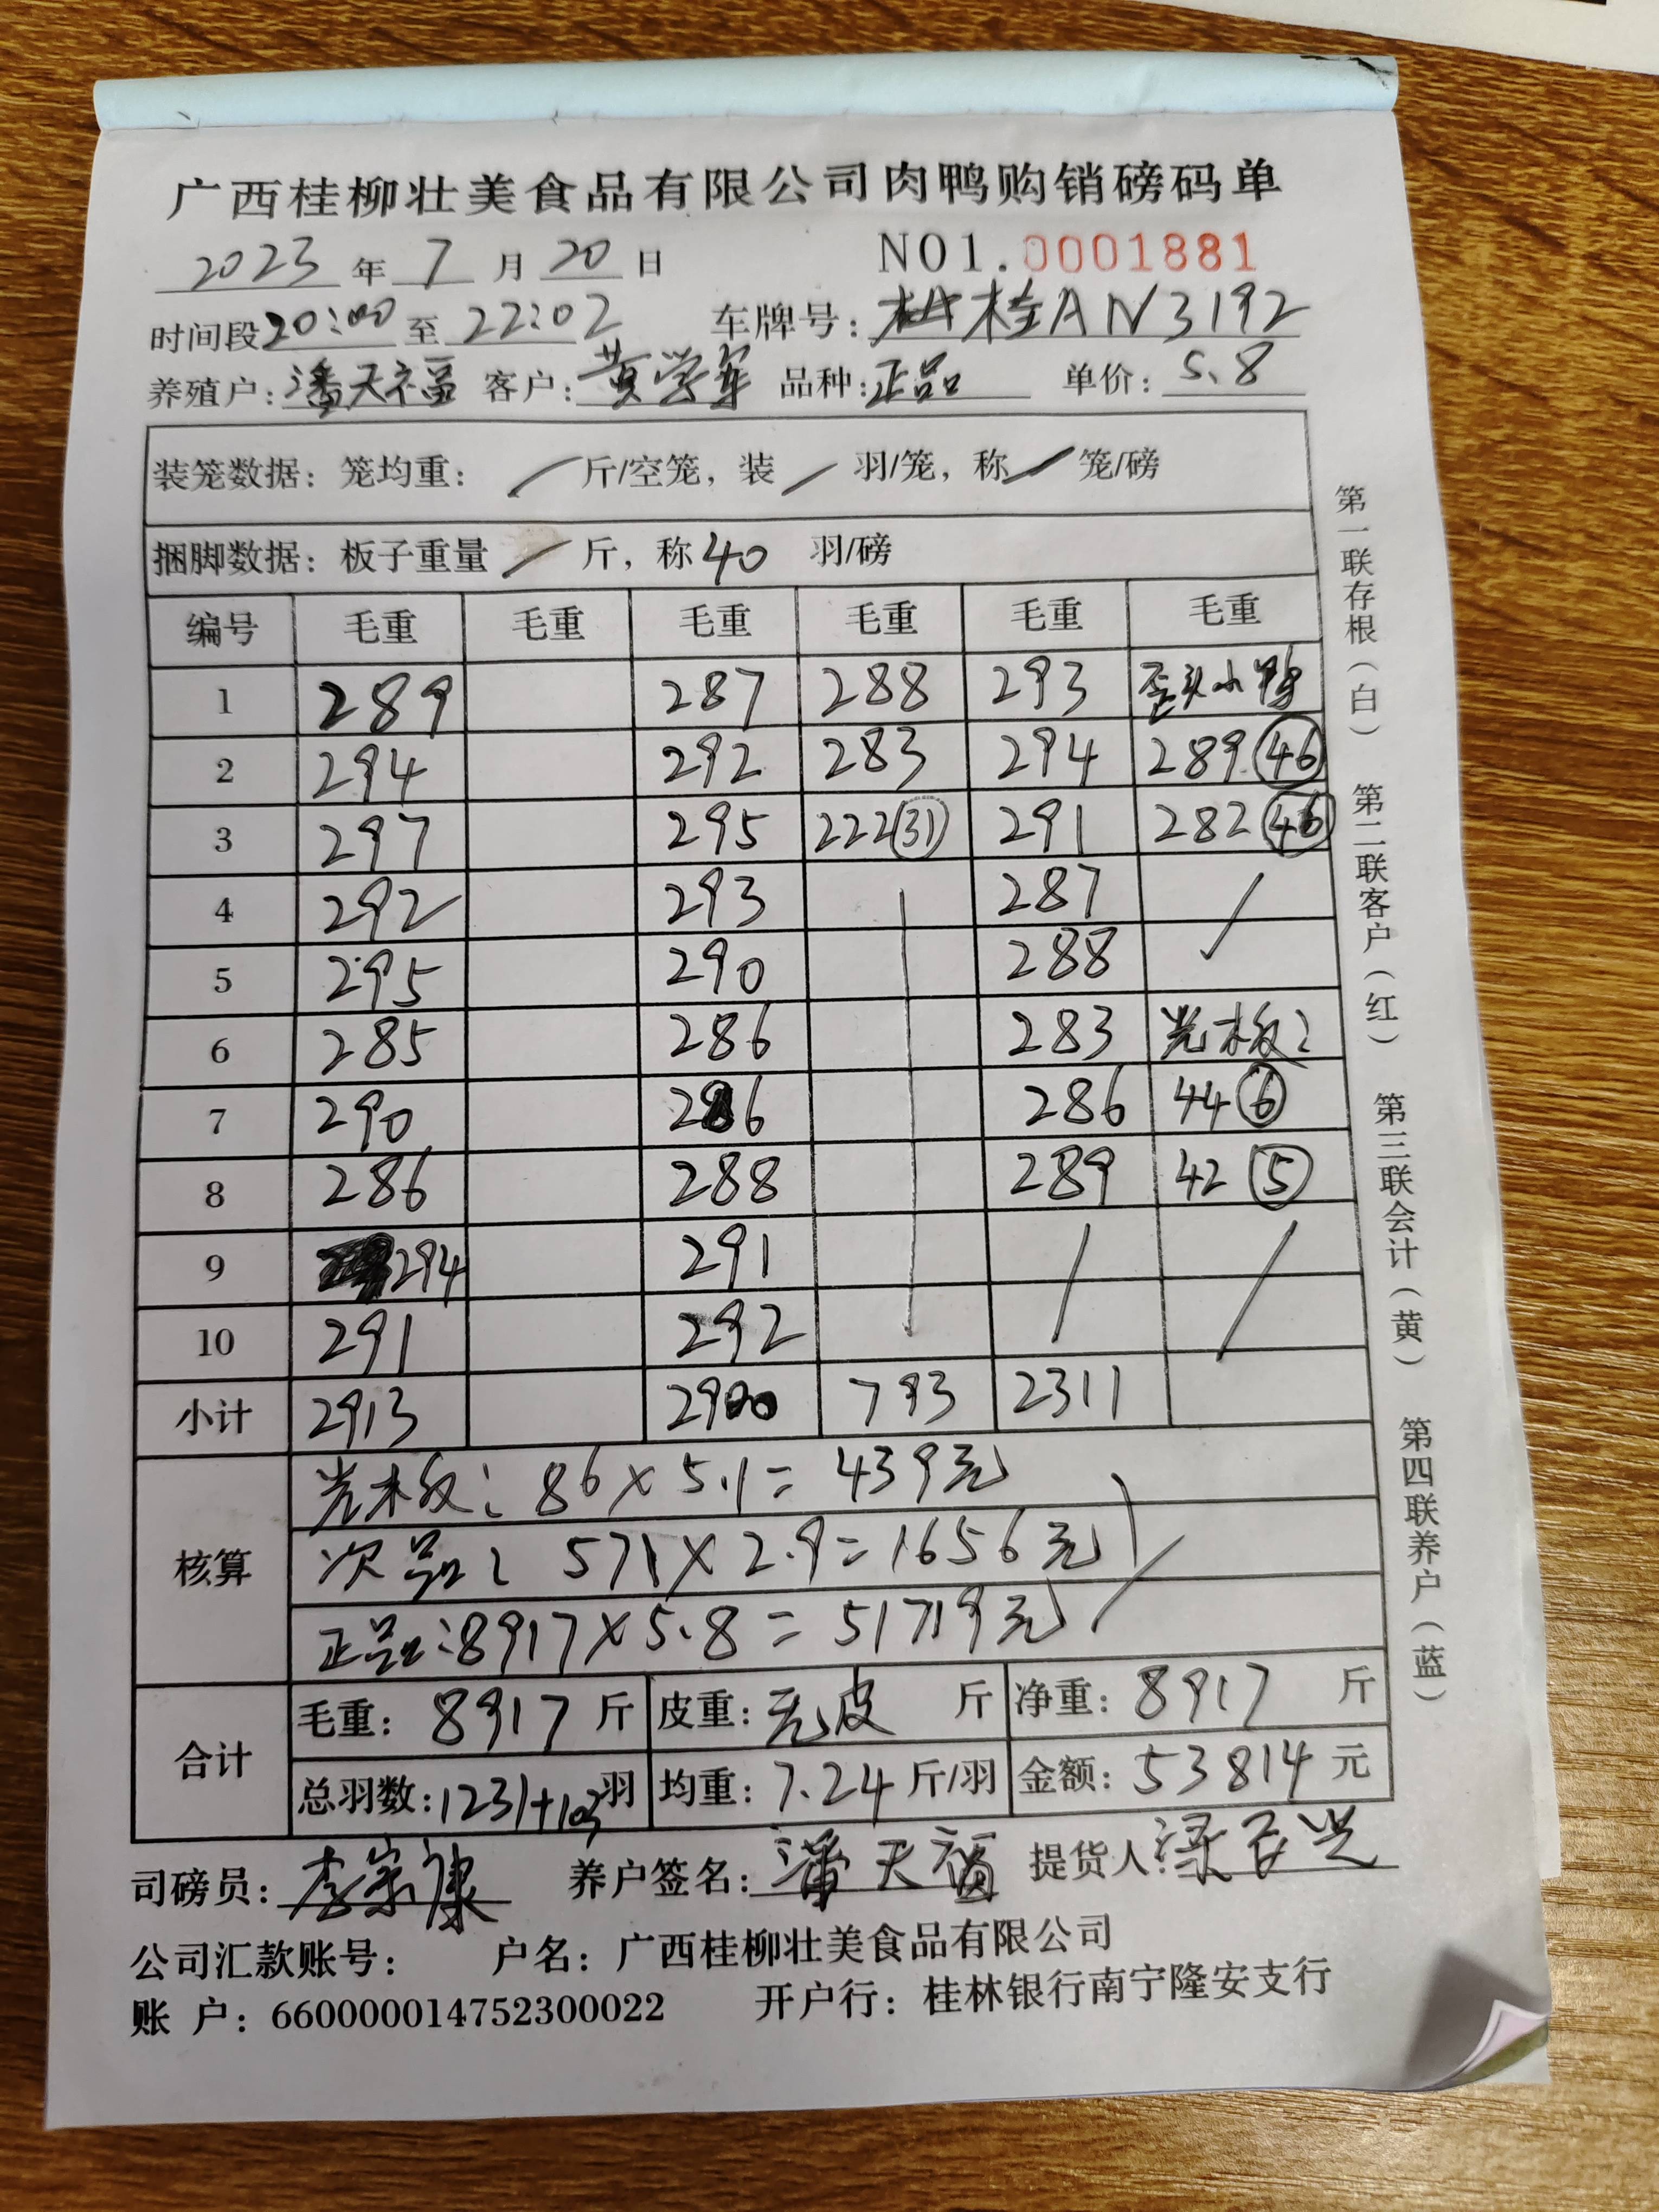 广西桂柳壮美食品有限公司肉鸭购销磅码单
2023 年 7 月 20 日 NO1.0001881
时间段 20:00 至 22:02 车牌号: 桂AN3192
养殖户: 潘天福 客户: 黄学军 品种: 正品 单价: 5.8
装笼数据: 笼均重: / 斤/空笼, 装 / 羽/笼, 称 / 笼/磅
捆脚数据: 板子重量 / 斤, 称 40 羽/磅
编号 毛重 毛重 毛重 毛重 毛重 毛重
1 289 287 288 293 歪头小鸭
2 294 292 283 294 289 46
3 297 295 222 31 291 282 46
4 292 293 287 /
5 295 290 288
6 285 286 283 光板:
7 290 286 286 44 6
8 286 288 289 42 5
9 294 291 / /
10 291 292
小计 2913 2900 793 2311
核算
光板: 86×5.1=439元
次品: 571×2.9=1656元
正品:8917×5.8=51719元
合计
毛重: 8917 斤 皮重: 无皮 斤 净重: 8917 斤
总羽数: 1231+103 羽 均重: 7.24 斤/羽 金额: 53814 元
司磅员: 李宗康 养户签名: 潘天福 提货人:
公司汇款账号: 户名: 广西桂柳壮美食品有限公司
账 户: 660000014752300022 开户行: 桂林银行南宁隆安支行
第一联存根(白) 第二联客户(红) 第三联会计(黄) 第四联养户(蓝)